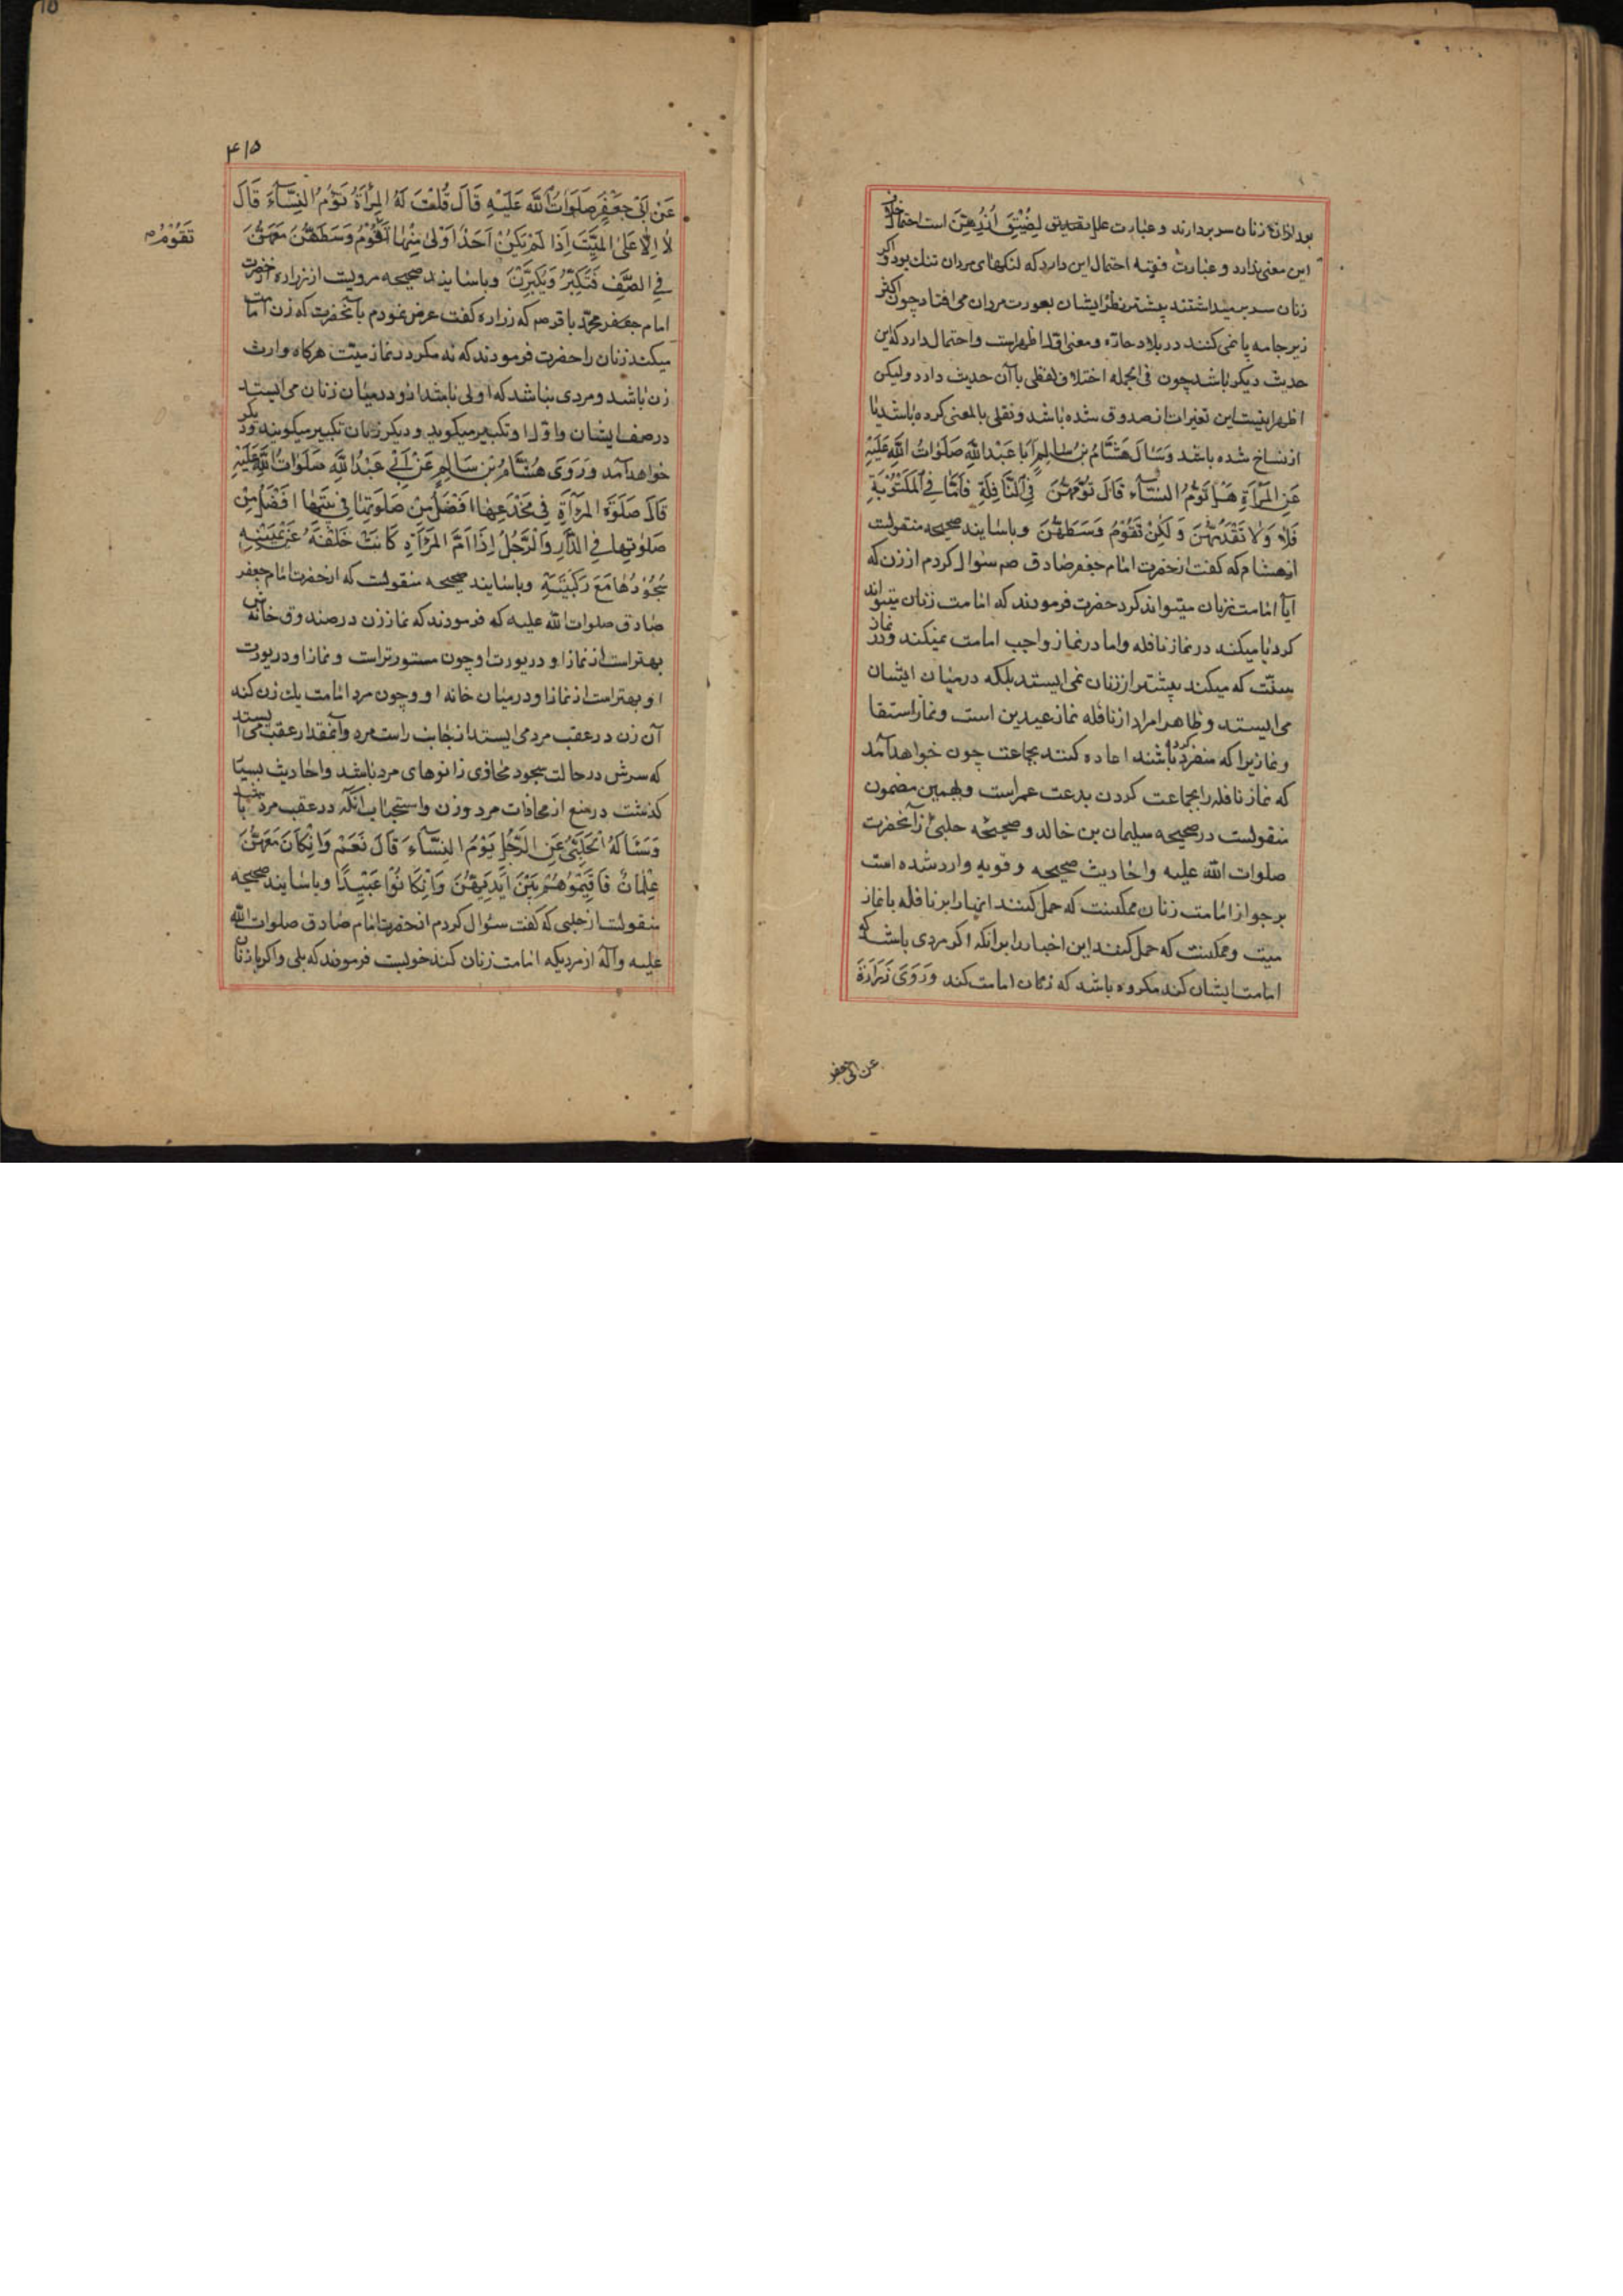 بود از آنکه زنان سر بردارند و عبارت علل بتقدیق لِضِیْقِ اُزُرِهِنَّ است احتمال
این معنی ندارد و عبارت فقیه احتمال این دارد که لنکهای مردان تنك بود و اکر
زنان سر برمیداشتند پیشتر نظر ایشان بعورت مردان می افتاد چون اکثر
زیر جامه پا نمی کنند در بلاد حاره و معنی اول اظهر است و احتمال دارد که این
حدیث دیکر باشد چون فی الجمله اختلاف لفظی با آن حدیث دارد ولیکن
اظهر اینست این تغیرات از صدوق شده باشد و نقلی بالمعنی کرده باشد یا
از نساخ شده باشد وَسَاَلَ هَشَّامُ بْنُ سَالِمٍ اَبَا عَبْدِ اللّٰهِ صَلَوَاتُ اللّٰهِ عَلَیْهِ
عَنِ الْمَرْأَةِ هَلْ تَؤُمُّ النِّسَآءَ قَالَ تَؤُمُّهُنَّ فِی النَّافِلَةِ فَاَمَّا فِی الْمَكْتُوْبَةِ
فَلَا وَلَا تَقَدَّمُهُنَّ وَلَكِنْ تَقُوْمُ وَسَطَهُنَّ و باسانید صحیحه منقولست
از هشام که کفت از حضرت امام جعفر صادق صم سوال کردم از زن که
آیا امامت زنان میتواند کرد حضرت فرمودند که امامت زنان میتواند
کرد یا میکند در نماز نافله و اما در نماز واجب امامت نمیکند و در نماز
سنّت که میکند پیشتر از زنان نمی ایستد بلکه در میان ایشان
می ایستد و ظاهرا مراد از نافله نماز عیدین است و نماز استسقا
و نمازیرا که منفرد کرده باشند اعاده کنند بجماعت چون خواهد آمد
که نماز نافله را بجماعت کردن بدعت عمر است و بهمین مضمون
منقولست در صحیحه سلیمان بن خالد و صحیحه حلبی از آنحضرت
صلوات الله علیه و احادیث صحیحه و قویه وارد شده است
بر جواز امامت زنان ممکنست که حمل کنند اینها را بر نافله یا نماز
میت و ممکنست که حمل کنند این اخبار را بر آنکه اکر مردی باشد که
امامت ایشان کند مکروه باشد که زنان امامت کند وَرَوَی زُرَارَةُ
عن ابی جعفر
۴۱۵
عَنْ اَبِیْ جَعْفَرٍ صَلَوَاتُ اللّٰهِ عَلَیْهِ قَالَ قُلْتُ لَهُ الْمَرْأَةُ تَؤُمُّ النِّسَآءَ قَالَ
لَا اِلَّا عَلَی الْمَیِّتِ اِذَا لَمْ یَكُنْ اَحَدٌ اَوْلٰی مِنْهَا تَقُوْمُ وَسَطَهُنَّ مَعَهُنَّ
تَقُوْمُ
فِی الصَّفِّ فَتُكَبِّرُ وَیُكَبِّرْنَ و باسانید صحیحه مرویست از زراره از حضرت
امام جعفر محمد باقر صم که زراره کفت عرض نمودم بآنحضرت که زن امامت
میکند زنان را حضرت فرمودند که نه مکر در نماز میّت هرکاه وارث
زن باشد و مردی نباشد که اولی باشد از او در میان زنان می ایستد
در صف ایشان و او را و تکبیر میکوید و دیکر زنان تکبیر میکویند و دیکر
خواهد آمد وَرَوَی هِشَامُ بْنُ سَالِمٍ عَنْ اَبِیْ عَبْدِ اللّٰهِ صَلَوَاتُ اللّٰهِ عَلَیْهِ
قَالَ صَلٰوةُ الْمَرْأَةِ فِی مَخْدَعِهَا اَفْضَلُ مِنْ صَلَوتِهَا فِی بَیْتِهَا اَفْضَلُ مِنْ
صَلَوتِهَا فِی الدَّارِ وَالرَّجُلُ اِذَا اَمَّ الْمَرْأَةَ كَانَتْ خَلْفَهُ عَنْ یَمِیْنِهِ
سُجُوْدُهَا مَعَ رَكْبَتَیْهِ و باسانید صحیحه منقولست که از حضرت امام جعفر
صادق صلوات الله علیه که فرمودند که نماز زن در صندوق خانه اش
بهتر است از نماز او در یورت او چون مستورتر است و نماز او در یورت
او بهتر است از نماز او در میان خانه او و چون مرد امامت یك زن کند
آن زن در عقب مرد می ایستد از جانب راست مرد و آنمقدار عقب می ایستد
که سرش در حالت سجود محاذی زانوهای مرد باشد و احادیث بسیار
کذشت در منع از محاذات مرد و زن و استحباب آنکه در عقب مرد باشد
وَسَئَالَهُ الْحَلَبِیُّ عَنِ الرَّجُلِ یَؤُمُّ النِّسَآءَ قَالَ نَعَمْ وَاِنْ كَانَ مَعَهُنَّ
غِلْمَانٌ فَاَقِیْمُوْهُمْ بَیْنَ اَیْدِیْهِنَّ وَاِنْ كَانُوْا عَبِیْدًا و باسانید صحیحه
منقولست از حلبی که کفت سئوال کردم از حضرت امام صادق صلوات الله
علیه و آله از مردیکه امامت زنان کند خوبست فرمودند که بلی و اکر با زنان